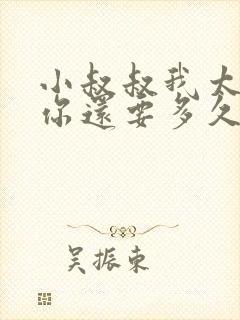 小叔叔我太
你還要多久
吴振东